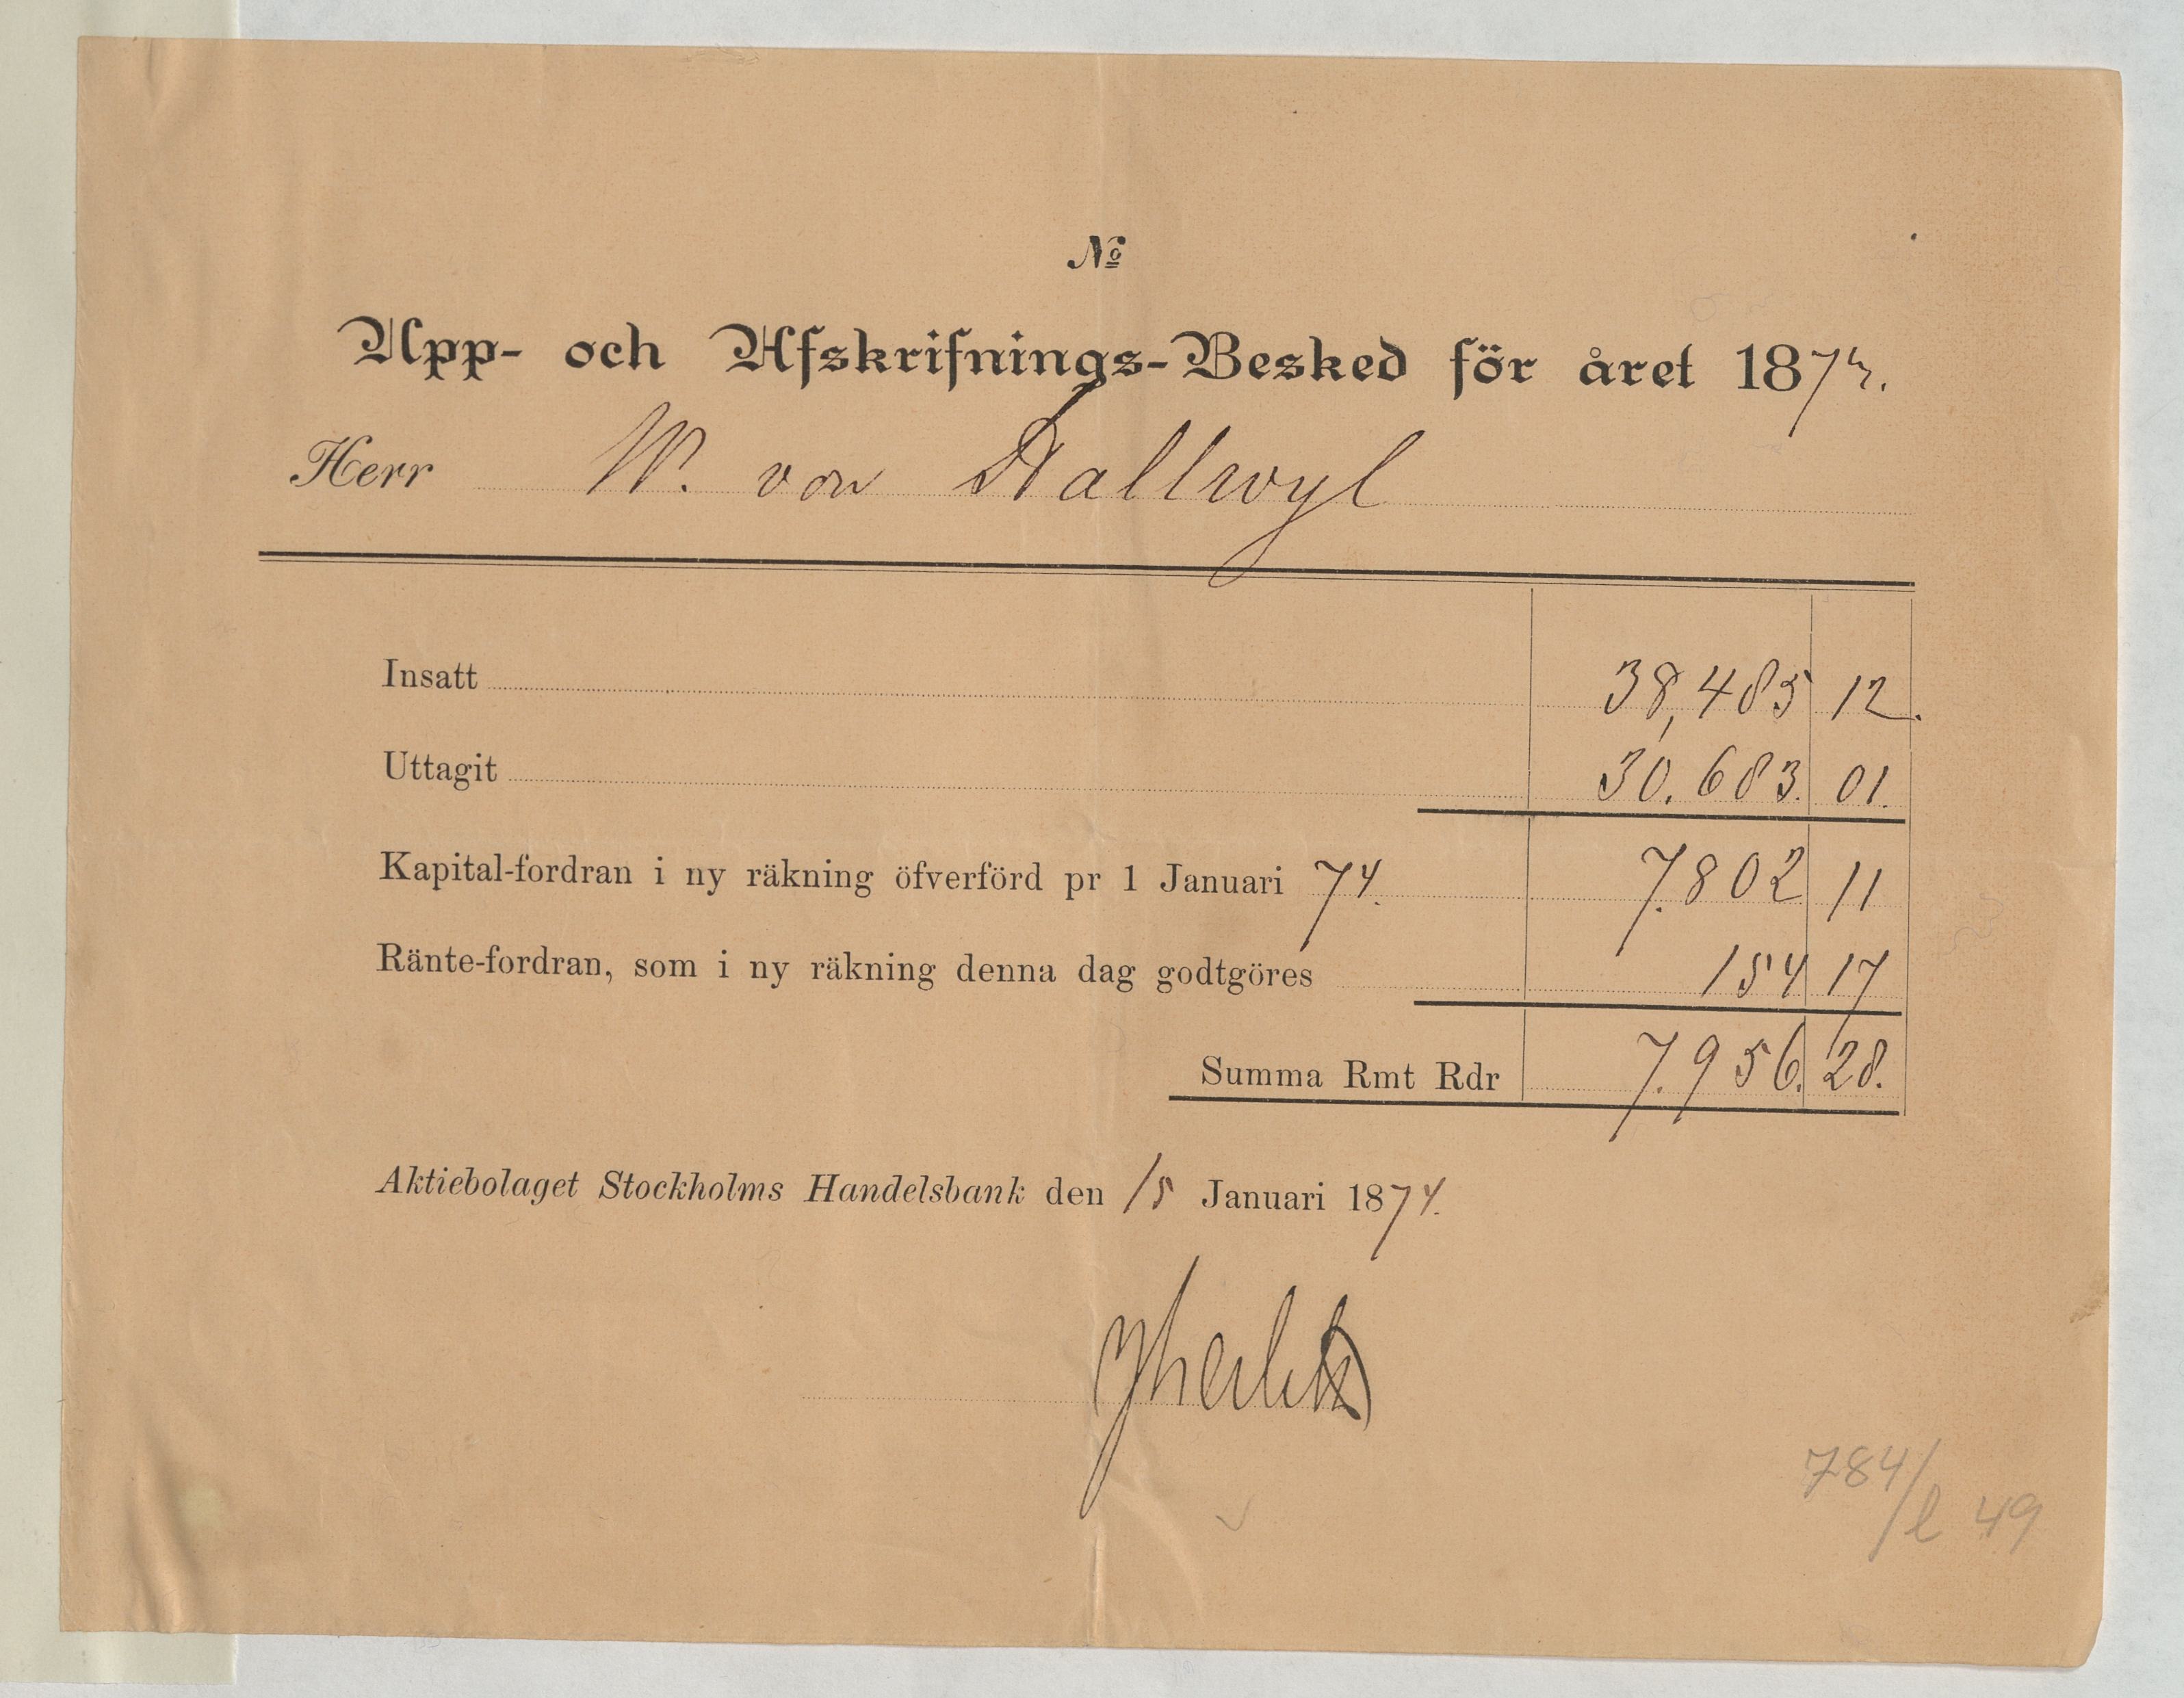 №
Upp- och Afskrifnings-Besked för året 1873.
Herr W. von Hallwyl
Insatt 38,485 12.
Uttagit 30.683. 01.
Kapital-fordran i ny räkning öfverförd pr 1 Januari 74. 7.802 11
Ränte-fordran, som i ny räkning denna dag godtgöres 154 17
Summa Rmt Rdr 7.956. 28.
Aktiebolaget Stockholms Handelsbank den 15 Januari 1874.
784/l 49